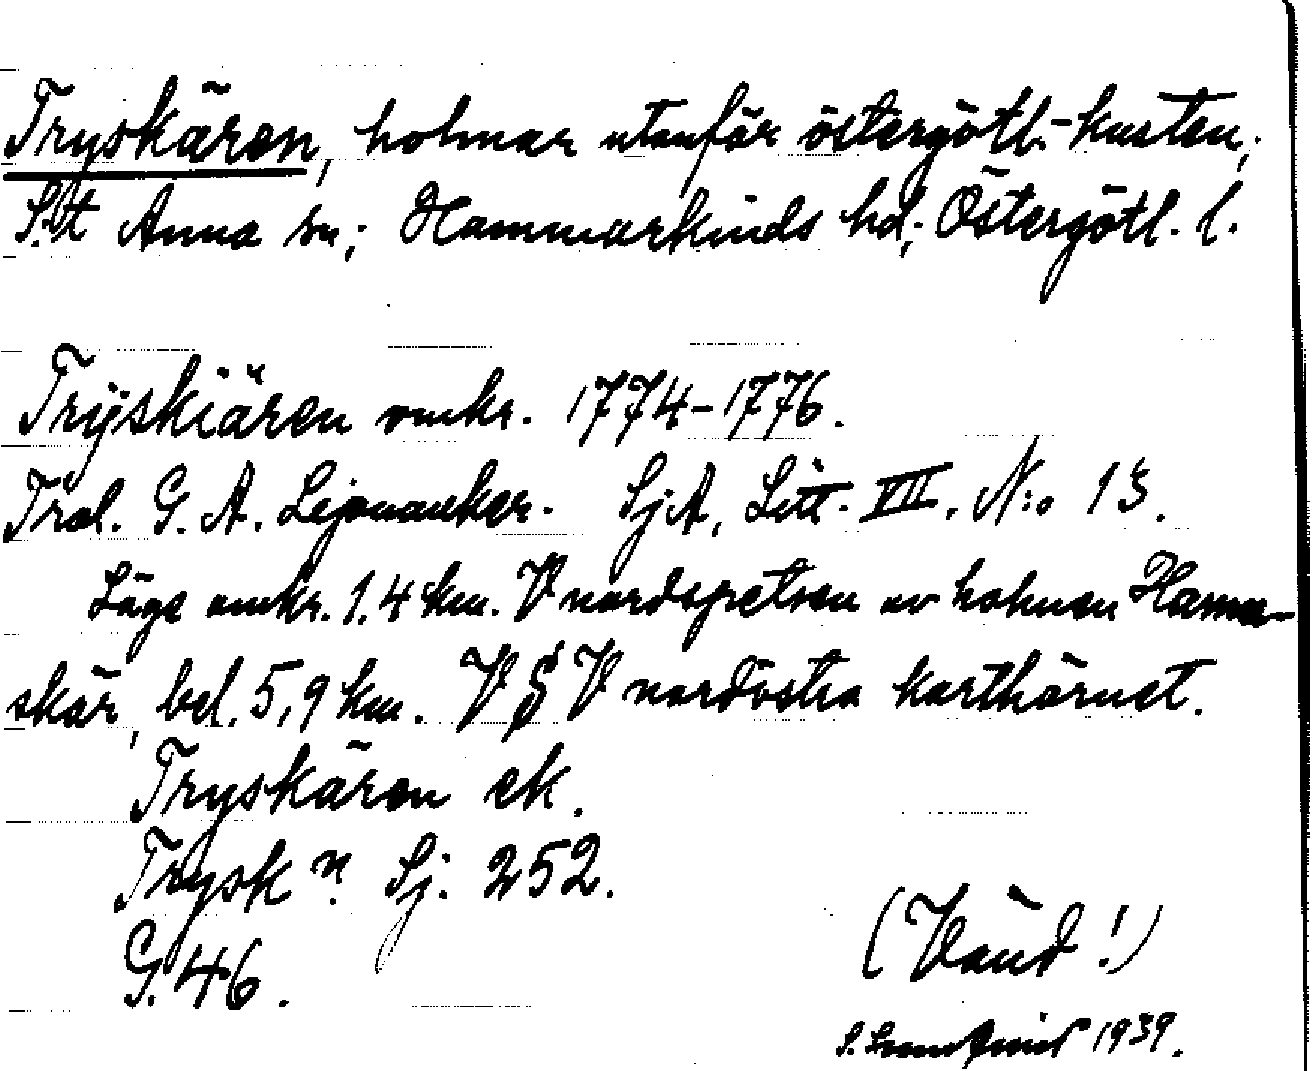 Tryskären, holmar utanför östergötl.-kusten;
S:t Anna sn; Hammarkinds hd; Östergötl. l.
Trÿskiären omkr. 1774-1776.
Trol. G. A. Lejonanker. SjA, Litt. VII. N:o 13.
Läge omkr. 1.4 km. V nordspetsen av holmen Hamne-
skär, bel. 5,9 km. V § V nordöstra karthörnet.
Tryskären ek.
Trysk n. Sj. 252.
G. 46.
(Vänd!)
1939.